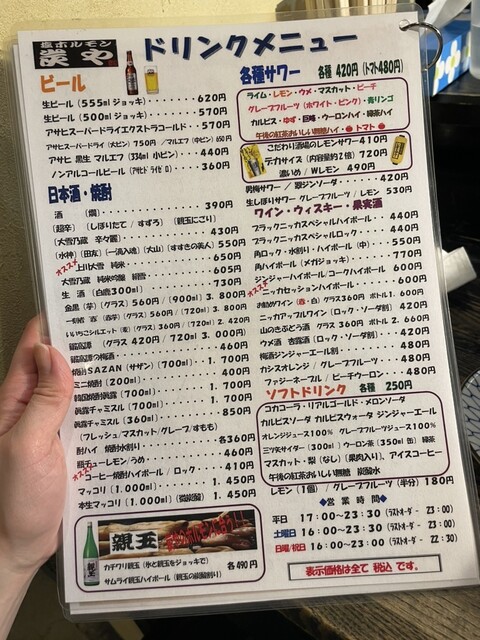 塩ホルモン
炭や
ドリンクメニュー
ビール
生ビール (555mlジョッキ) 620円
生ビール (500mlジョッキ) 570円
アサヒスーパードライエクストラコールド 570円
アサヒスーパードライ (大ビン) 750円 /マルエフ (中ビン) 650円
アサヒ 黒生 マルエフ (334ml 小ビン) 440円
ノンアルコールビール (アサヒドライゼロ) 360円
日本酒・焼酎
酒 (燗) 390円
(超辛) (しぼりたて / すずろ) (親玉にごり)
(大雪乃蔵 辛々麗) 430円
(水神) (田友) (一滴入魂) (大山) (すすきの美人) 550円
オススメ 上川大雪 純米 605円
大雪乃蔵 純米吟醸 絹雪 605円
生 酒 (白鹿300ml) 730円
金黒 (芋) (グラス) 560円 / (900ml) 3.800円
(グラス) 560円 / (720ml) 3.800円
いいちこシルエット (麦) (グラス) 360円 / (720ml) 2.420円
(グラス) 420円 / (720ml) 3.000円
の梅酒 460円
焼酎SAZAN (サザン) (700ml) 1.700円
ミニ焼酎 (200ml) 400円
韓国焼酎眞露 (700ml) 1.700円
眞露チャミスル (700ml) 1.700円
眞露チャミスル (360ml) 850円
(フレッシュ/マスカット/グレープ/すもも)
酎ハイ 焼酎水割り 各360円
瓶チューレモン/うめ 460円
オススメ コーヒー焼酎ハイボール / ロック 410円
マッコリ (1.000ml) 1.450円
本生マッコリ (1.000ml) (微炭酸) 1.450円
親玉
カチワリ親玉 (氷と親玉をジョッキで)
サムライ親玉ハイボール (親玉の炭酸割り) 各490円
各種サワー 各種 420円 (トマト480円)
ライム・レモン・ウメ・マスカット・ピーチ
グレープフルーツ (ホワイト・ピンク)・青リンゴ
カルピス・ゆず・巨峰・ウーロンハイ・緑茶ハイ
午後の紅茶おいしい無糖ハイ・●トマト●
こだわり酒場のレモンサワー410円
デカサイズ (内容量約2倍) 720円
濃いめ / Wレモン 490円
男梅サワー / 翠ジンソーダ 420円
生しぼりサワー グレープフルーツ / レモン 530円
ワイン・ウィスキー・果実酒
ブラックニッカスペシャルハイボール 440円
ブラックニッカスペシャルロック 440円
角ロック・水割り・ハイボール (中) 550円
角ハイボール (メガジョッキ) 770円
ジンジャーハイボール/コークハイボール 600円
オススメ ニッカセッションハイボール 640円
ワイン (赤・白) グラス360円 ボトル 1.600円
ニッカアップルワイン (ロック・ソーダ割) 420円
山のきぶどう酒 グラス 360円 ボトル 2.660円
ウメ酒 杏露酒 (ロック・ソーダ割) 420円
梅酒ジンジャーエール割 480円
カシスオレンジ / グレープフルーツ 480円
ファジーネーブル / ピーチウーロン 480円
ソフトドリンク 各種 250円
コカコーラ・リアルゴールド・メロンソーダ
カルピスソーダ カルピスウォータ ジンジャーエール
オレンジジュース100% グレープフルーツジュース100%
三ツ矢サイダー (300ml) ウーロン茶 (350ml 缶) 緑茶
マスカット・梨 (なし) [果肉入り]、アイスコーヒー
午後の紅茶おいしい無糖 炭酸水
レモン (1個) / グレープフルーツ (半分) 180円
◆営業時間◆
平日 17:00〜23:30 (ラストオーダー 23:00)
土曜日 16:00〜23:30 (ラストオーダー 23:00)
日曜/祝日 16:00〜23:00 (ラストオーダー 22:30)
表示価格は全て 税込 です。